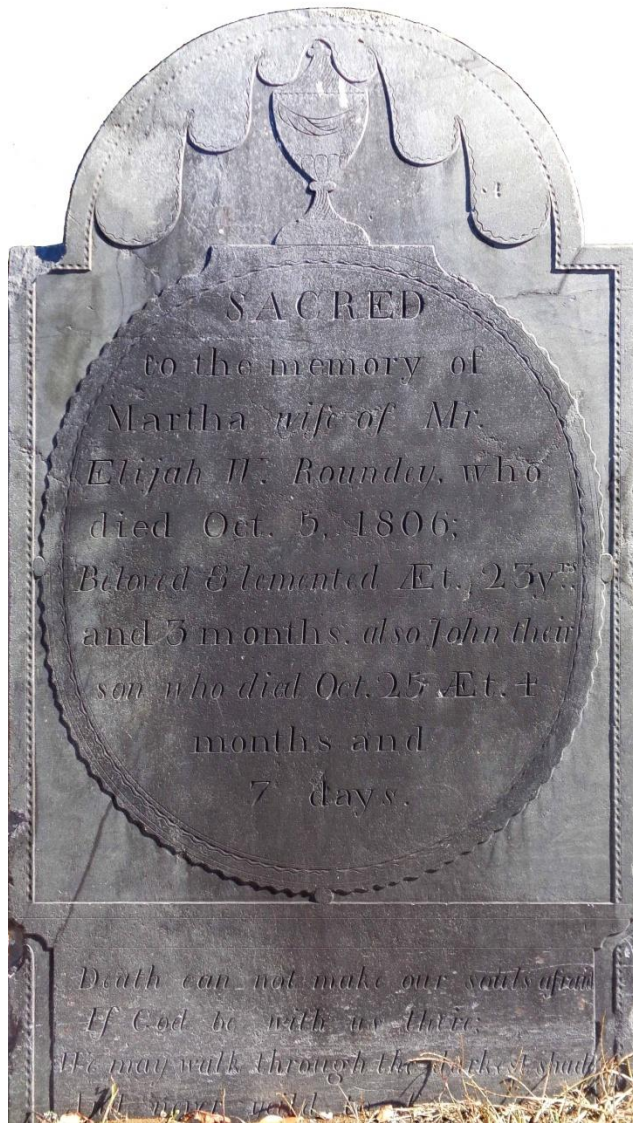 SACRED
to the memory of
Martha wife of Mr.
Elijah W. Roundey, who
died Oct. 5, 1806;
Beloved & lemented Æt. 23 yrs.
and 3 months. also John their
son who died Oct. 25 Æt. 4
months and
7 days.
Death can not make our souls afraid
If God be with us there;
We may walk through the darkest shade
And never yeild to